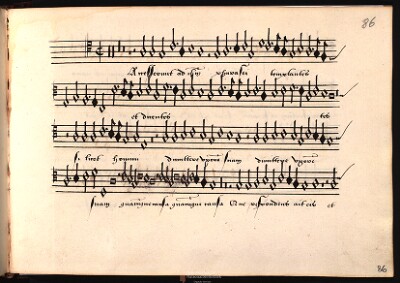 86
Accesserunt ad eum pharisei temptantes
et dicentes eos
si licet homini dimittere uxorem suam dimittere uxorem
suam quacumque causa quacumque causa Qui respondens ait eis et
86